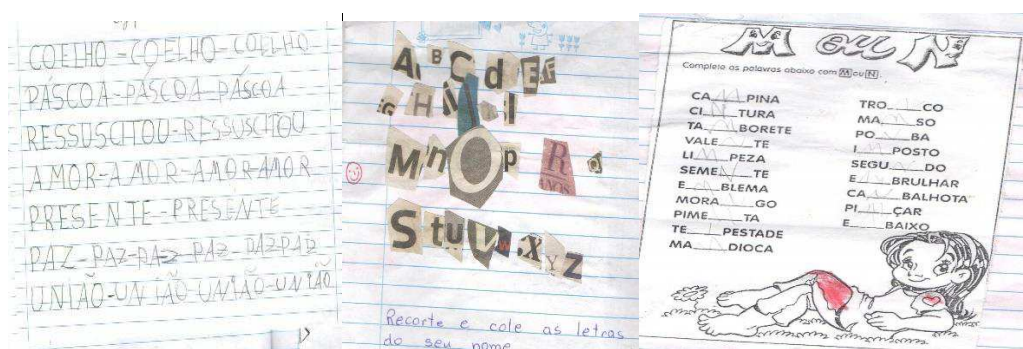 COELHO-COELHO-COELHO
PÁSCOA-PÁSCOA-PÁSCOA
RESSUSCITOU-RESSUSCITOU
AMOR-AMOR-AMOR-AMOR
PRESENTE-PRESENTE
PAZ-PAZ-PAZ-PAZ-PAZ-PAZ
UNIÃO-UNIÃO UNIÃO-UNIÃO
A B C d E F
G H i J l
M n O p R
ANOS
S t u V W X Y Z
Recorte e cole as letras
do seu nome
M ou N
Complete as palavras abaixo com M ou N.
CA M PINA
CI N TURA
TA M BORETE
VALE___TE
LI M PEZA
SEME___TE
E___BLEMA
MORA___GO
PIME___TA
TE___PESTADE
MA___DIOCA
TRO___CO
MA___SO
PO___BA
I M POSTO
SEGU N DO
E___BRULHAR
CA___BALHOTA
PI___ÇAR
E___BAIXO